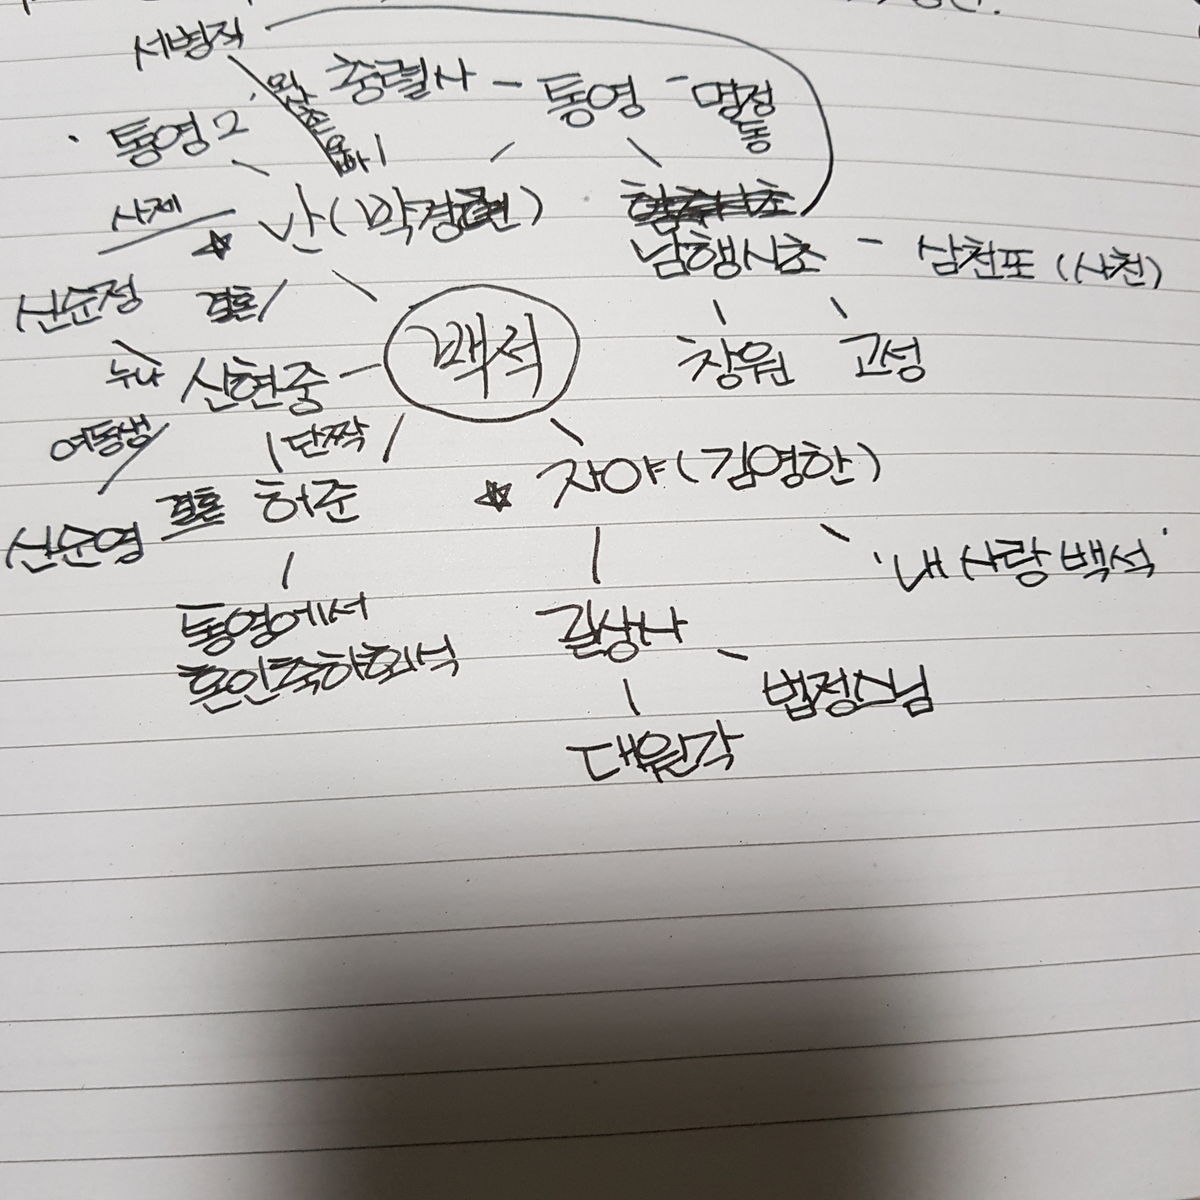 서병직
충렬사 - 통영 - 명정동
통영2
사제
난(박경련)
남행시초 - 삼천포 (사천)
신순정
결혼
백석
창원 고성
누나
신현중
여동생
단짝
자야(김영한)
신순영 결혼 허준
'내 사랑 백석'
통영에서
혼인축하회석
길상사
법정스님
대원각